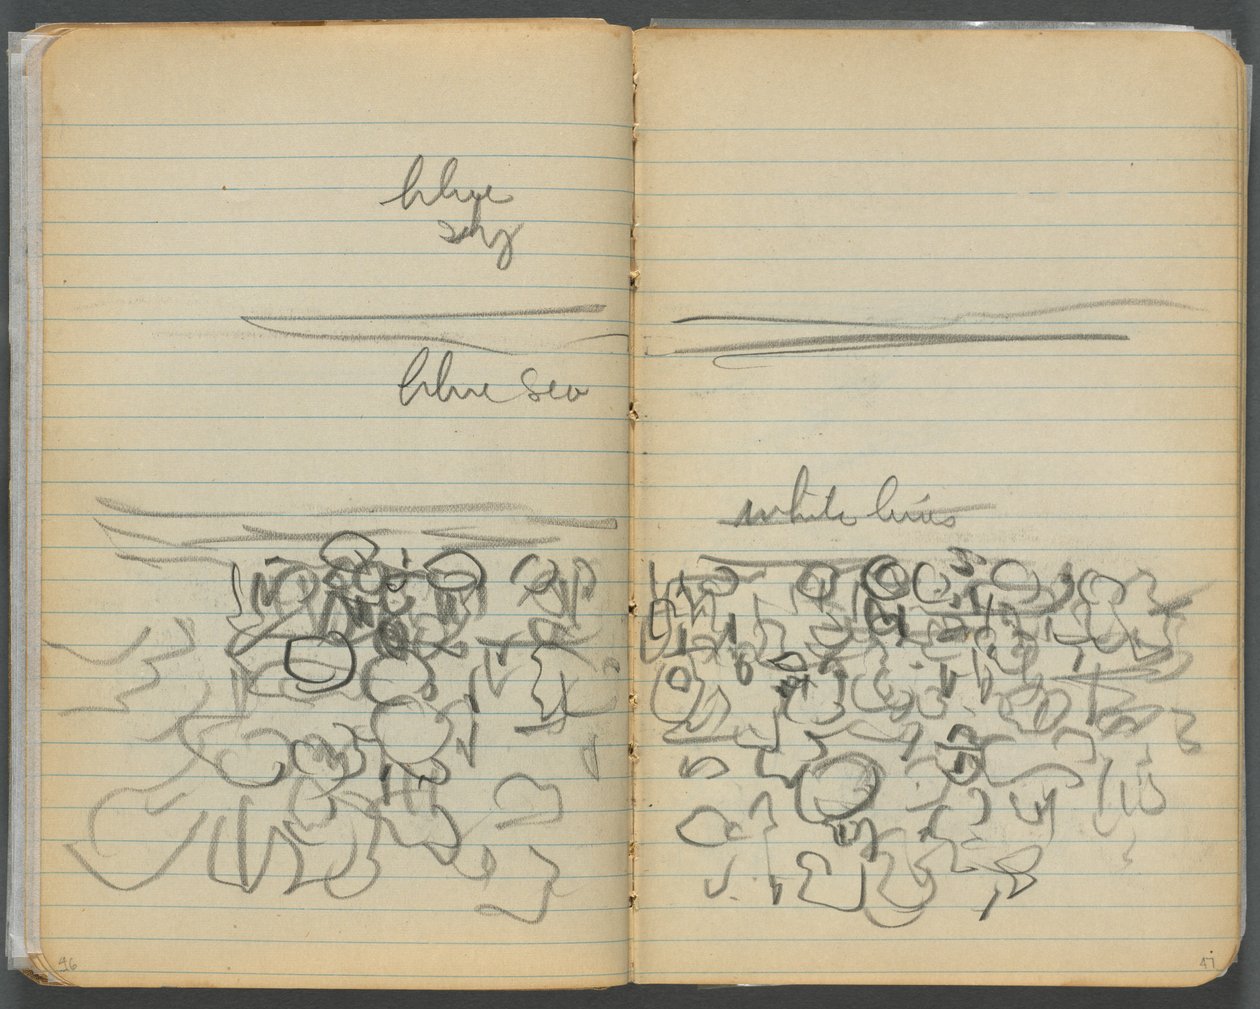 blue
sky
blue sea
white lines
46
47